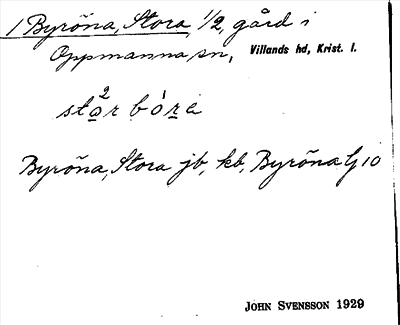 1 Byröna, Stora 1/2, gård i
Oppmanna sn, Villands hd, Krist. l.
Byröna, Stora jb, kb, Byröna G 10
JOHN SVENSSON 1929